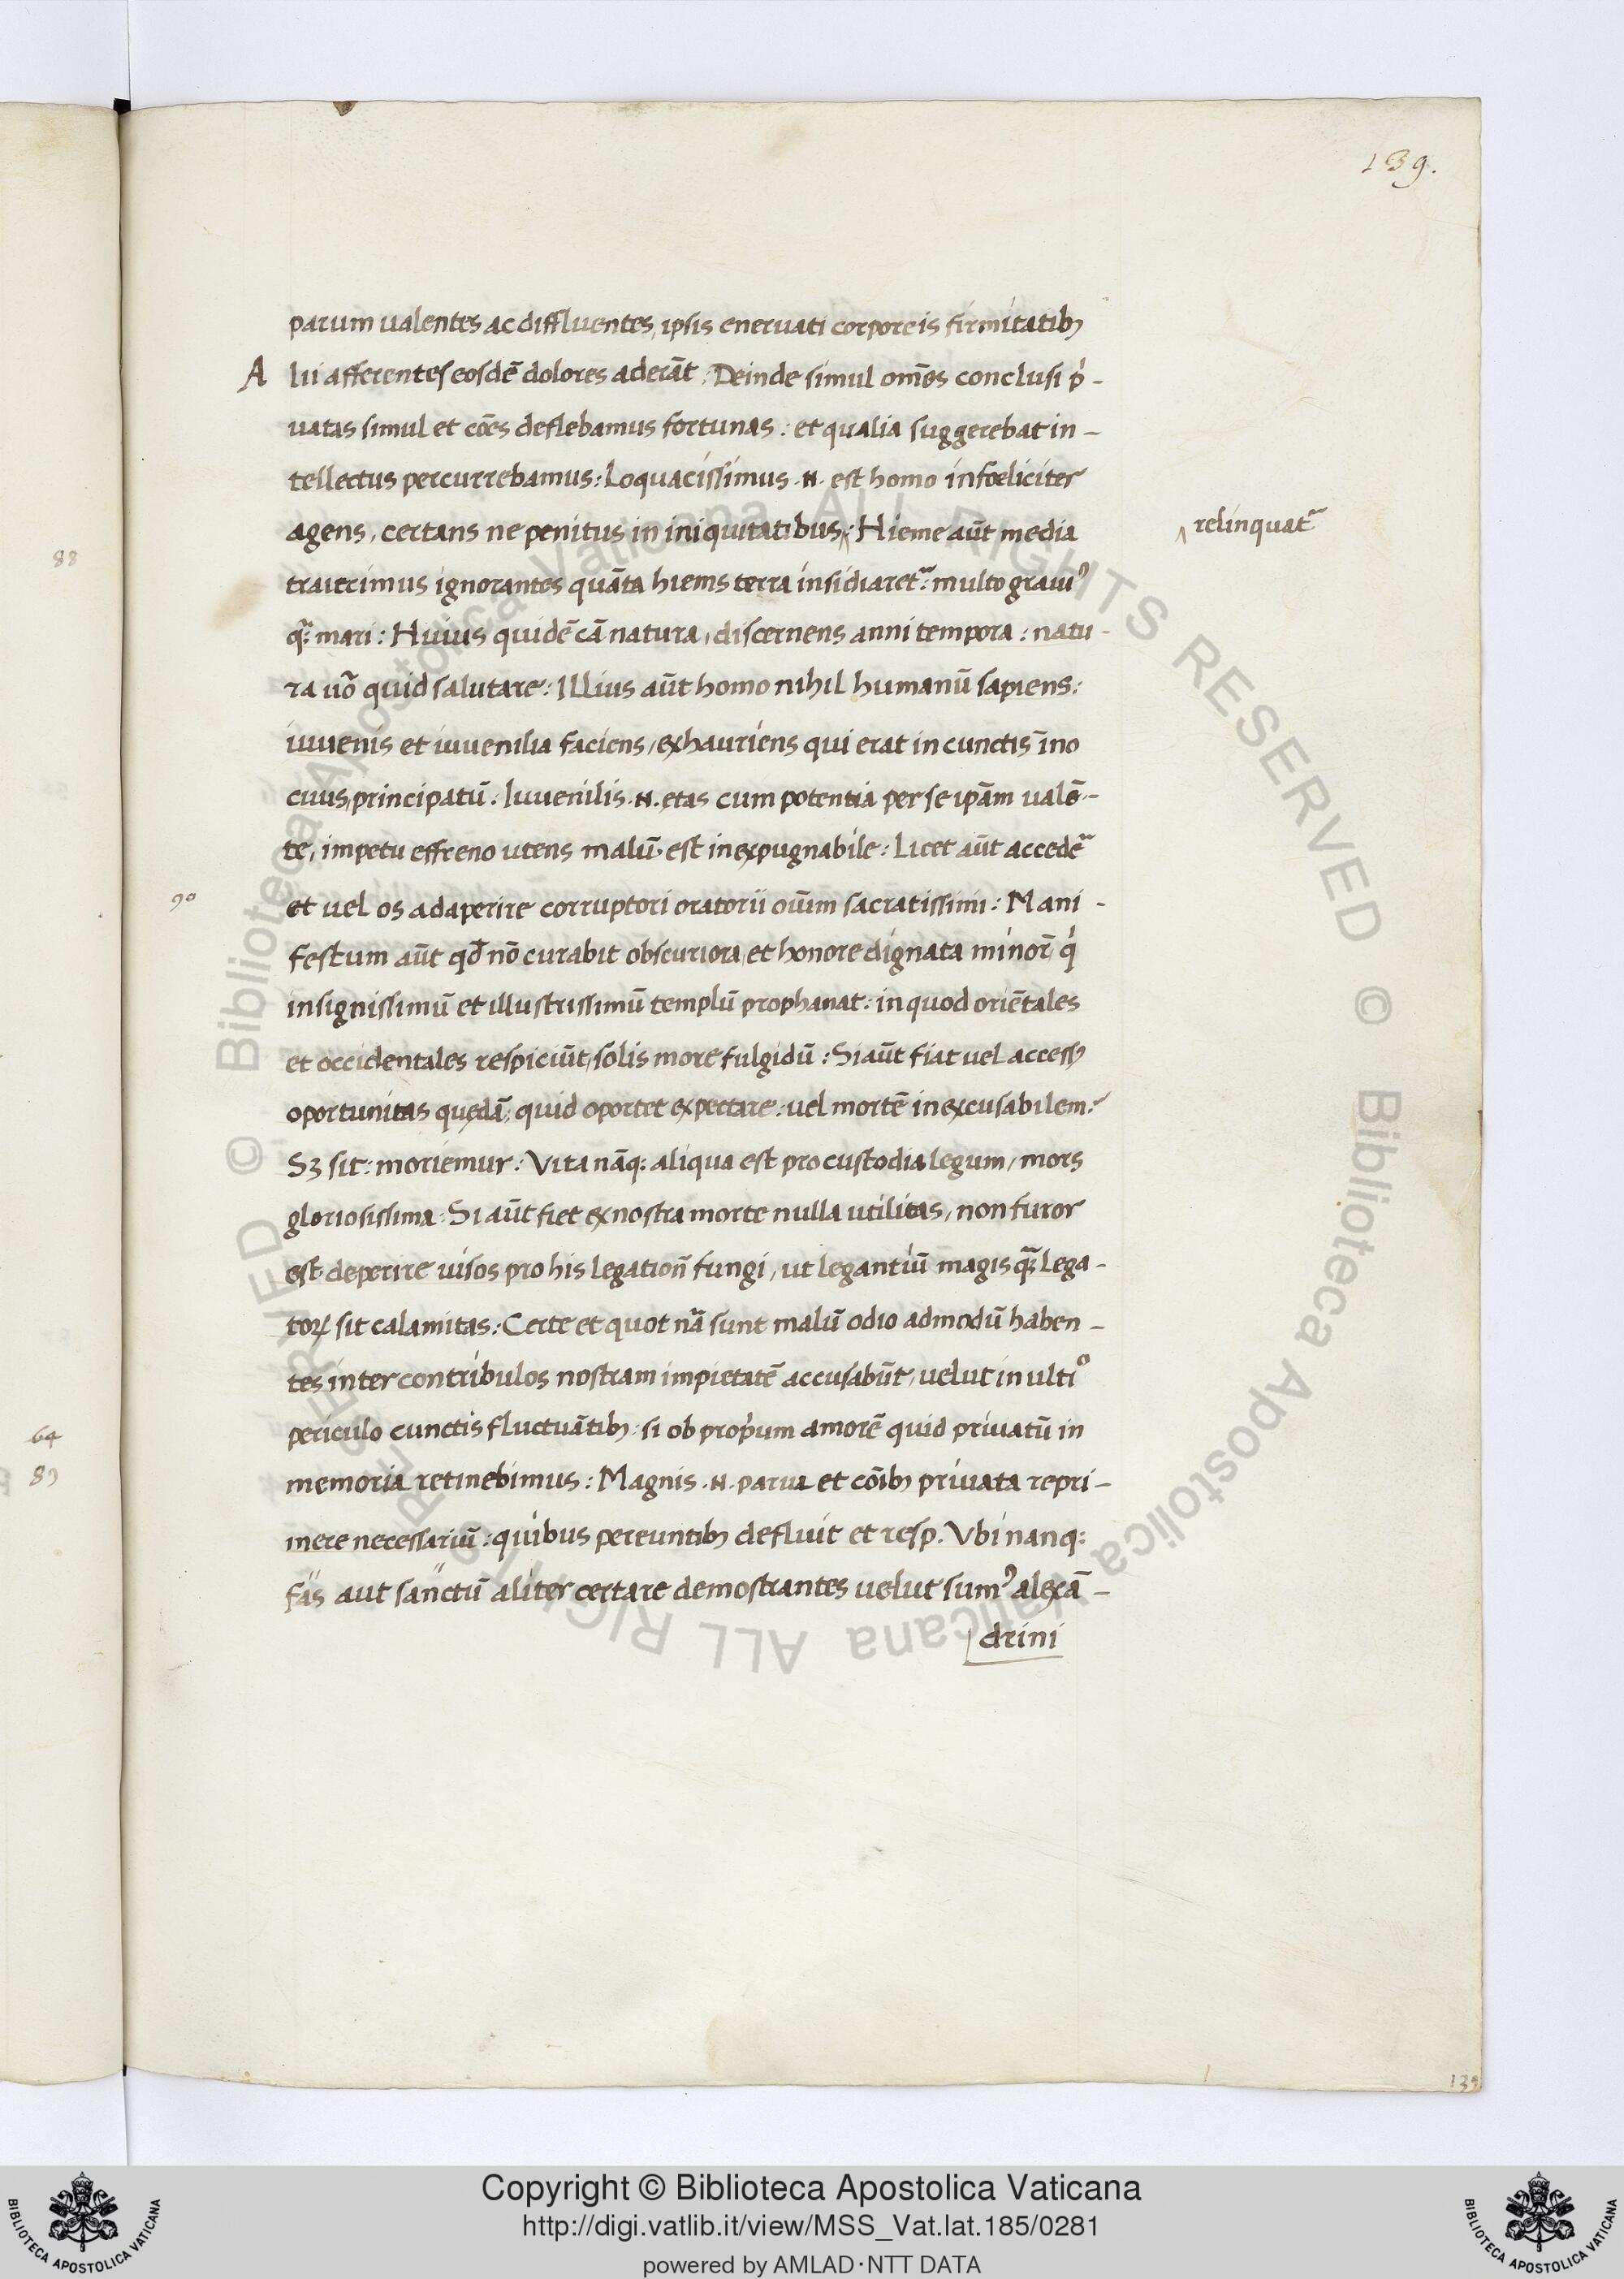 139.
parum ualentes ac diffluentes, ipsis eneruati corporeis firmitatibȝ
A lii afferentes eosdē dolores aderāt. Deinde simul om̄es conclusi p̓-
uatas simul et cōes deflebamus fortunas: et qualia suggerebat in-
tellectus percurrebamus: Loquacissimus .N. est homo infœliciter
agens, certans ne penitus in iniquitatibus: Hieme aūt media
relinquat᷑
88
traiecimus ignorantes quāta hiems terra insidiaret᷑: multo grauiꝰ
qᷓ: mari: Huius quidē cā natura, discernens anni tempora: natu-
ra uō quid salutare: Illius aūt homo nihil humanū sapiens:
iuuenis et iuuenilia faciens, exhauriens qui erat in cunctis īno
cuus, principatū. Iuuenilis .N. etas cum potentia per se ipām ualē-
te, impetu effreno utens malū est inexpugnabile: Licet aūt accedē᷑
90
et uel os adaperire corruptori oratorii oīum sacratissimi: Mani-
festum aūt qđ nō curabit obscuriora, et honore dignata minor̄ q̓
insignissimū et illustrissimū templū prophanat: in quod oriētales
et occidentales respiciūt, solis more fulgidū: Si aūt fiat uel accessꝰ
oportunitas quędā, quid oportet expectare: uel mortē inexcusabilem:
Sȝ sit: moriemur: Vita nāq: aliqua est pro custodia legum, mors
gloriosissima. Si aūt fiet ex nostra morte nulla utilitas, non furor
est deperire uisos pro his legation̄ fungi, ut legantiū magis qᷓ: lega-
toꝝ sit calamitas: Certe et quot nᷓa sunt malū odio admodū haben-
tes inter contribulos nostram impietatē accusabūt, uelut in ultiº
periculo cunctis fluctuātibȝ: si ob prop̓um amorē quid priuatū in
64
89
memoria retinebimus: Magnis .N. parua et cōibȝ priuata repri-
mere necessariū: quibus pereuntibȝ defluit et resp. Vbi nanq:
fas aut sanctū aliter certare demostrantes uelut sumꝰ alexā-
drini
139
© Biblioteca Apostolica Vaticana ALL RIGHTS RESERVED © Biblioteca Apostolica Vaticana ALL RIGHTS RESERVED
Copyright © Biblioteca Apostolica Vaticana
http://digi.vatlib.it/view/MSS_Vat.lat.185/0281
powered by AMLAD·NTT DATA
BIBLIOTECA APOSTOLICA VATICANA
BIBLIOTECA APOSTOLICA VATICANA